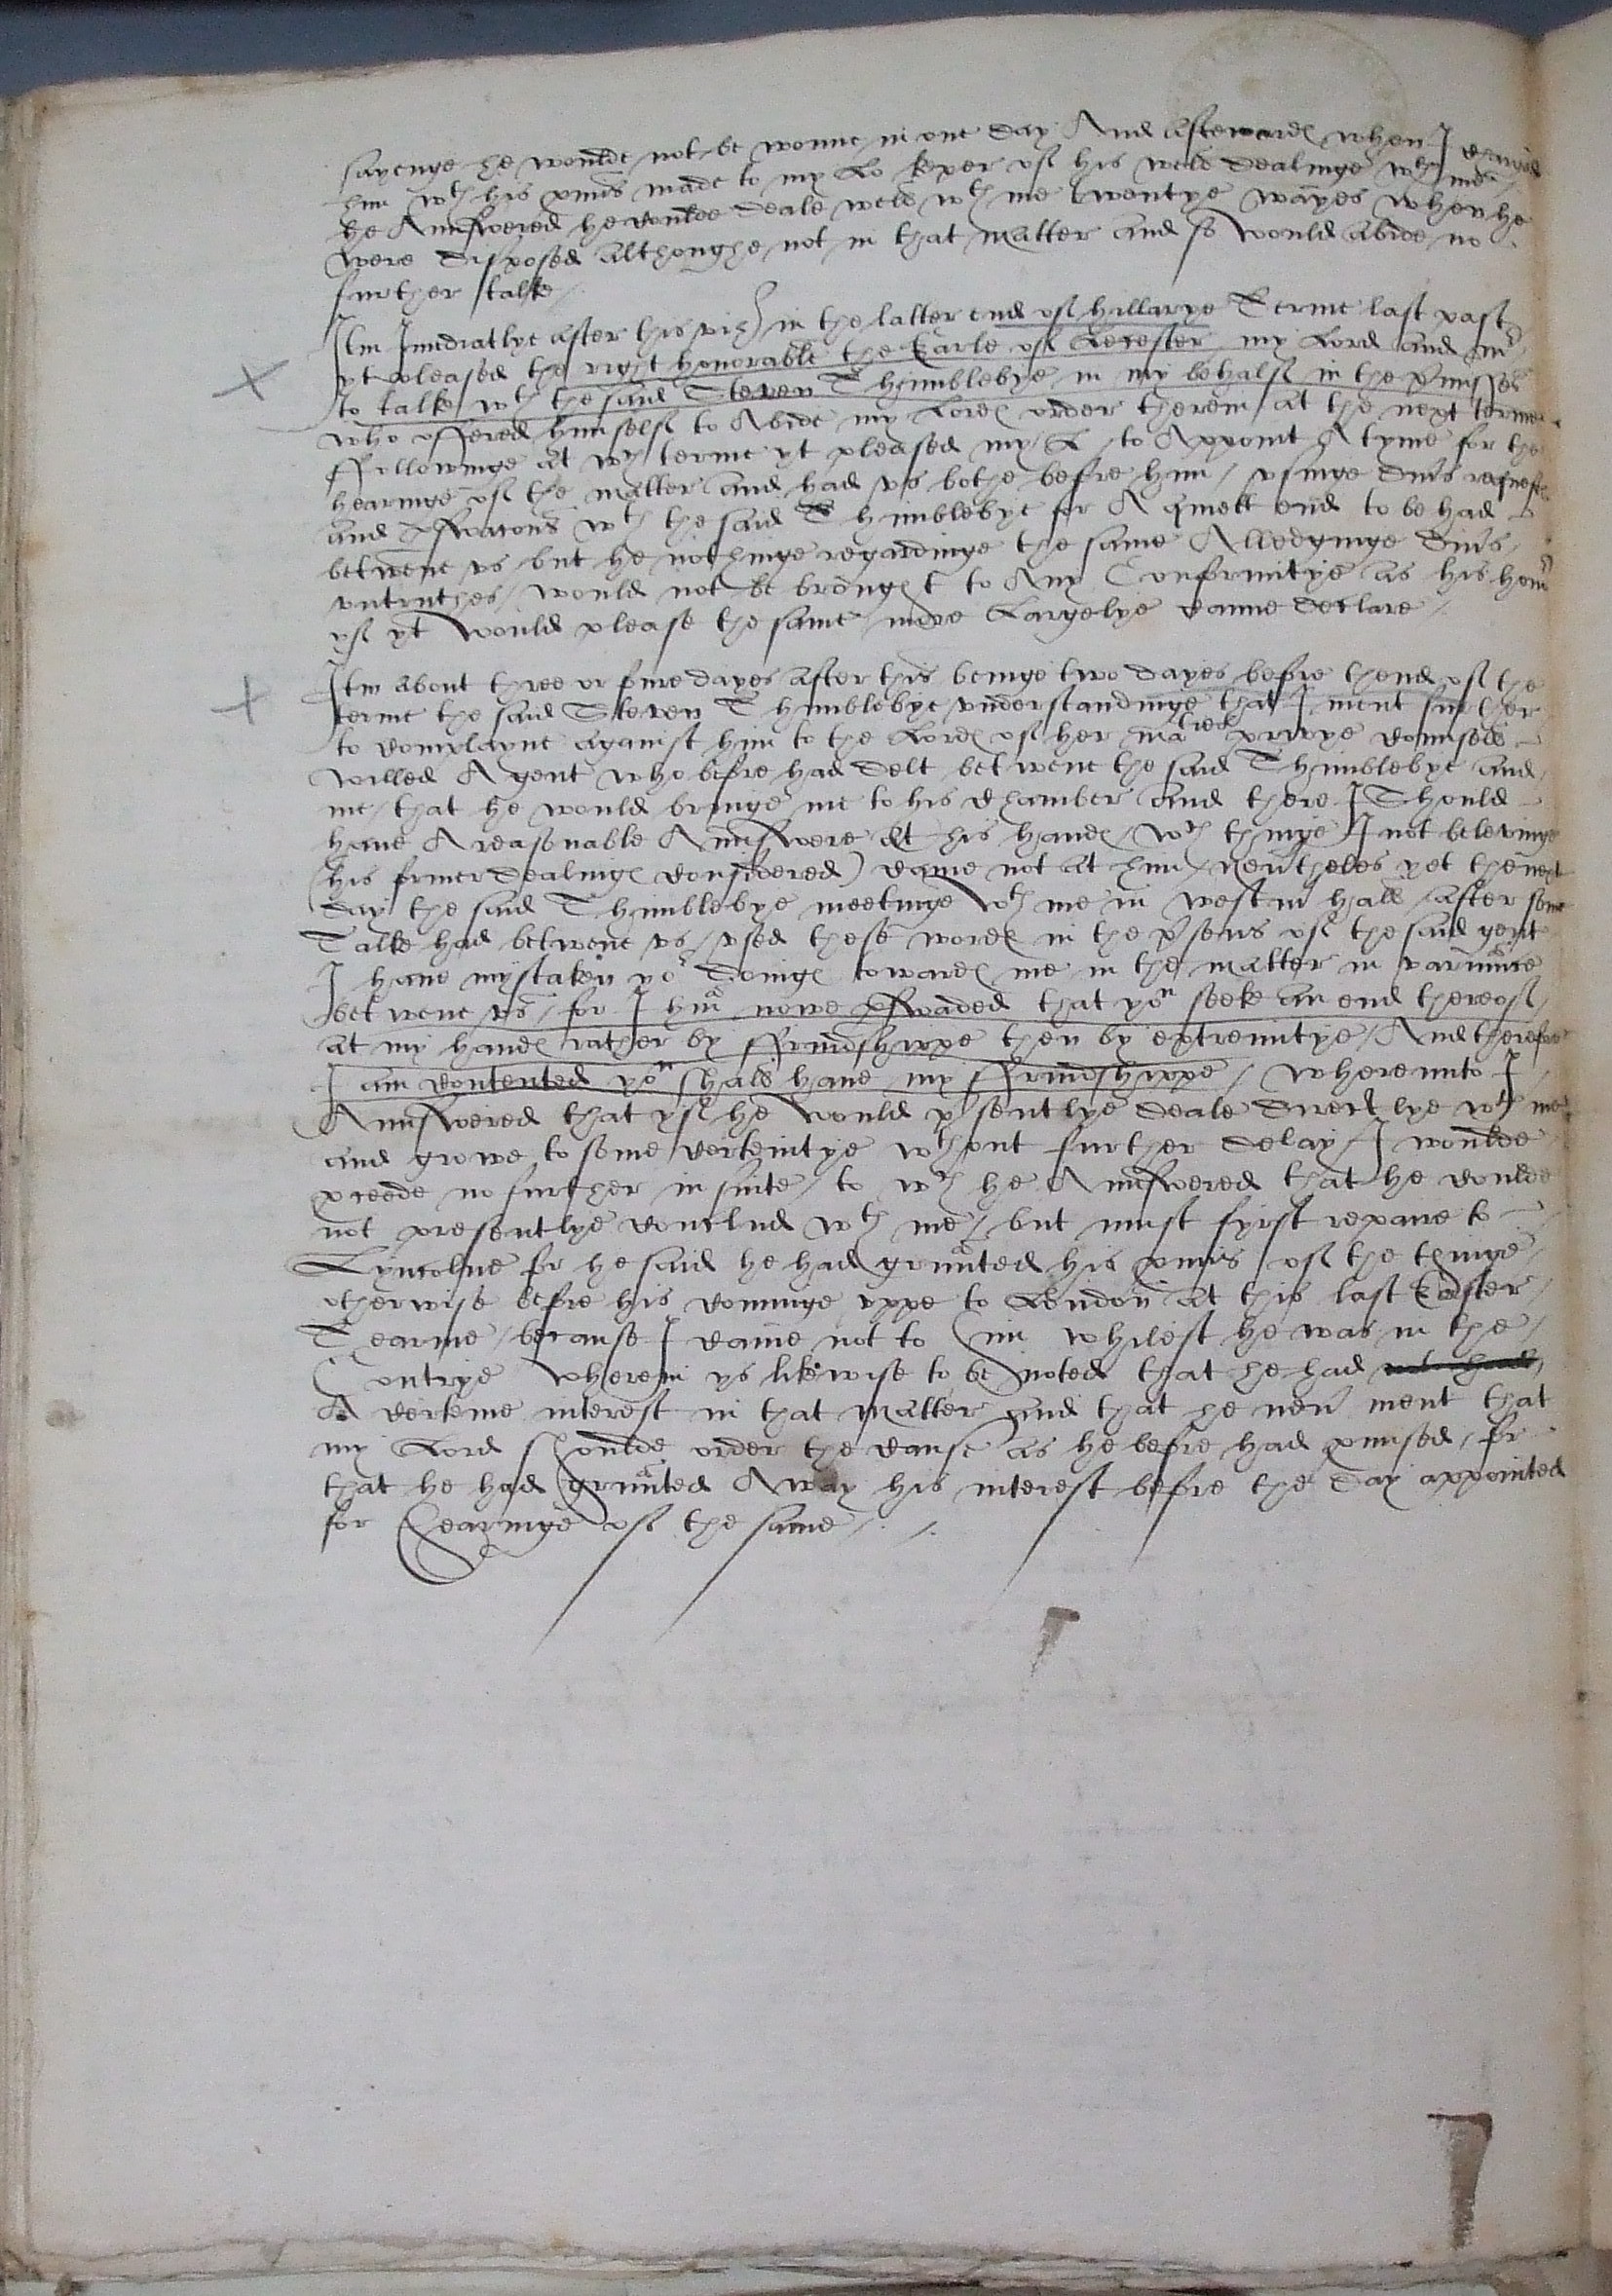 sayenge he woulde not be wonne in one day And afterwards when I charged
him wth his promis made to my Lo keper of his well dealinge wth me
he Aunswered he coulde deale well wth me twentye wayes when he
were disposed althoughe not in that matter and so would abide no
further talke /
Itm Imediatlye after this viz in the latter end of hillarye Terme last past
yt pleased the right honorable the Earle of Lecester my Lord and mr
to talke wth the said Steven Thimblebye in my behalf in the pmisses
who offered himself to Abide my Lordes order therein at the next terme
ffollowinge at wch terme yt pleased my L to Appoint A tyme for the
hearinge of the matter and had vs bothe before him / vsinge divs requests
and pswacons wth the said Thimblebye for A quiett end to be had
betwene vs but he nothinge regardinge the same Alledginge divs
vntruthes / would not be brought to Any Conformitye as his honor
yf yt would please the same more Largelye canne declare /
Itm about three or foure dayes after this beinge two dayes before thend of the
terme the said Steven Thimblebye / vnderstandinge that I ment further
to complayne against him to the Lordes of her maties privye counsell
willed A gent who before had delt betwene the said Thimblebye and
me / that he would bringe me to his chamber and there I Should
have A reasonable Aunswere at his handes / wch thinge I not belevinge
(his former dealinges considered) came not at him / nevtheles yet the next
day the said Thimblebye meetinge wth me in westm hall / after some
Talke had betwene vs / vsed these wordes in the psens of the said gent
I have mystaken yor doinges towardes me in the matter in variaunce
betwene vs / for I am nowe pswaded that you seeke an end thereof
at my handes rather by ffrindshippe then by extremitye / And therefore
I am contented you shall have my ffrindshippe / whereunto I
Aunswered that yf he would psentlye deale directlye wth me
and growe to some certeintye wthout further delay / I woulde
pceede no further in suite / to wch he Aunswered that he coulde
not presentlye conclud wth me / but must fyrst repaire to
Lyncolne for he said he had graunted his pmis of the thinge
otherwise before his cominge vppe to London at this last Easter
Tearme / because I came not to him whilest he was in the
Contrye wherein ys likewise to be noted that he had
A certeine interest in that matter and that he nevr ment that
my Lord shoulde order the cause as he before had pmised / for
that he had graunted Away his interest before the day appointed
for hearinge of the same /